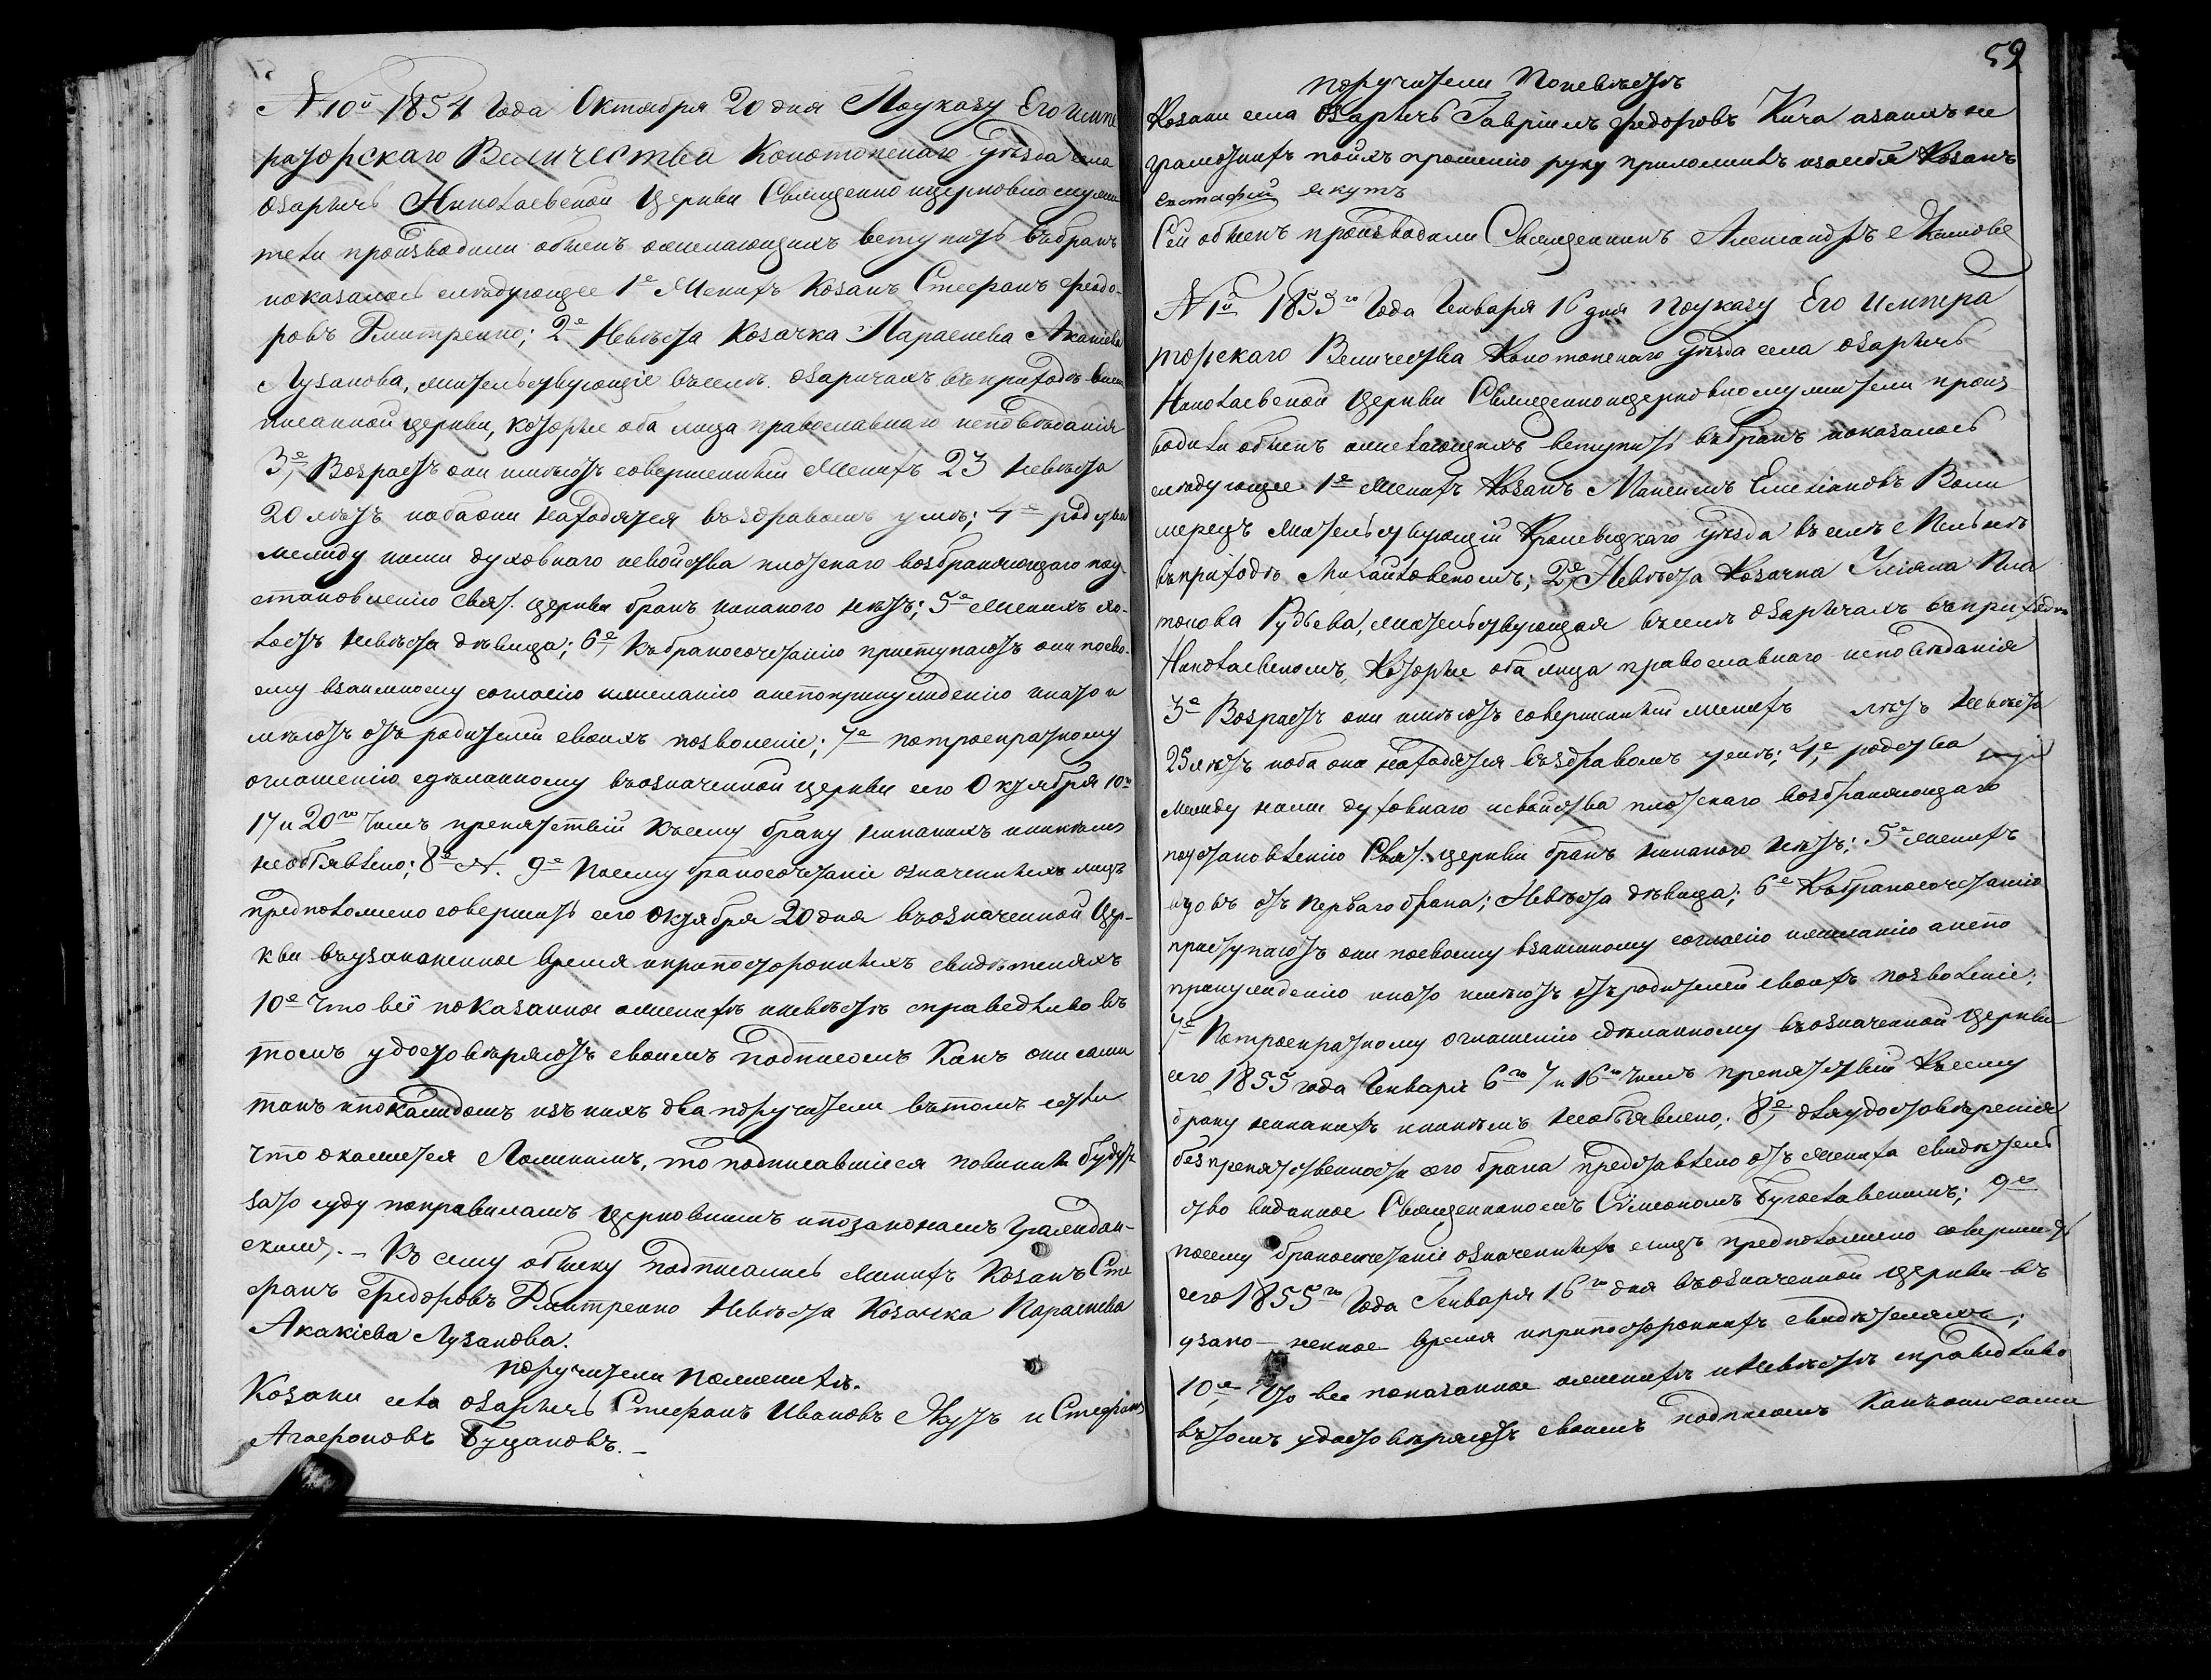 № 10й 1854 Года Октября 20 дня Поуказу Его Импе
раторскаго Величества Конотопскаго уѣзда села
Озаричъ Николаевской Церкви Священно ицерковнослужи
тели производили обыскъ ожелающихъ вступить вбракъ
иоказалось слѣдующее 1е Женихъ Козакъ Стефанъ Федо-
ровъ Дмитренко; 2е Невѣста Козачка Параскева Акакіева
Лузанова, жительствующіе вселѣ Озаричахъ вприходѣ выше
писанной церкви, которые оба лица православнаго исповѣданія
3е, Возрастъ они имѣютъ совершенный Женихъ 23 Невѣста
20 лѣтъ иобаони находятся вздравомъ умѣ; 4е родства
между ними духовнаго исвойства плотскаго возбраняющаго поу-
становленію Свят. церкви бракъ никакого нѣтъ; 5е Женихъ хо-
лостъ Невѣста дѣвица; 6е, Кбракосочетанію приступаютъ они посво-
ему взаимному согласію ижеланію анепопринужденію инато и
мѣютъ отъ родителей своихъ позволеніе; 7е потроекратному
оглашенію сдѣланному въозначенной церкви сего Октября 10го
17 и 20го Чиселъ препятствій ксему браку никакихъ никѣмъ
необъявлено; 8е N. 9е Посему бракосочетаніе означенныхъ лицъ
предположено совершить сего Октября 20 дня въозначенной Цер-
кви въузаконенное время ипритостороннихъ свидѣтеляхъ
10е Что всё показанное оженихѣ иневѣстѣ справедливо въ
томъ удостовѣряютъ своимъ подписомъ Какъ они сами
такъ ипокаждомъ изъ нихъ два поручители втомъ если
Что окажется Ложнымъ, то подписавшіеся повинны будутъ
зато суду поправиламъ Церковнымъ ипозаконамъ Граждан-
скимъ. – Къ сему обыску подписались Женихъ Козакъ Сте
фанъ Федоровъ Дмитренко Невѣста Козачка Параскева
Акакіева Лузанова.
поручители Поженихѣ.
Козаки села Озаричъ Стефанъ Ивановъ Якутъ и Стефанъ
Агафоновъ Буцановъ. –
59
поручители Поневѣстѣ
Козаки села Озаричъ Гавріилъ Федоровъ Кича азанихъ не
грамотныхъ поихъ прошенію руку приложилъ изасебя Козакъ
Евстафій Якутъ
Сей обыскъ производили Священникъ Александръ
№ 1й 1855го Года Генваря 16 дня Поуказу Его Импера
торскаго Величества Конотопскаго уѣзда села Озаричъ
Николаевской Церкви Священноицерковнослужители произ
водили обыскъ ожелающихъ вступить вбракъ иоказалось
слѣдующее 1е Женихъ Козакъ Максимъ Емеліановъ
Жительствующій Кролевецкаго уѣзда в селѣ
вприходѣ Михайловскомъ; 2е, Невѣста Козачка Уліана Пла
тонова Рудьева, жительствующая вселѣ Озаричахъ вприходѣ
Николаевскомъ, Которые оба лица православнаго исповѣданія
3е Возрастъ они имѣютъ совершенный женихъ лѣтъ Невѣста
25 лѣтъ иоба они находятся вздравомъ умѣ; 4е, родства
Между ними духовнаго исвойства плотскаго возбраняющаго
поустановленію Свят. церкви бракъ никакого нѣтъ; 5е Женихъ
вдовъ отъ перваго брака; Невѣста дѣвица; 6е Кбракосочетанію
приступаютъ они посвоему взаимному согласію ижеланію анепо
принужденію инато имѣютъ отъродителей своихъ позволеніе;
7е Потроекратному оглашенію сдѣланному въозначенной Церкви
сего 1855 года Генваря 6го 7 и 16го Чиселъ препятствій Ксему
браку никакихъ никѣмъ необъявлено; 8е, дляудостовѣренія
безпрепятственности сего брака представлено отъ жениха свидѣтель
ство виданное Священникомъ Сѵмеономъ Богославскимъ; 9е
посему бракосочетаніе означенныхъ лицъ предположено совершить
сего 1855го Года Генваря 16го дня въозначенной церкви въ
узако – ненное время ипритостороннихъ свидѣтеляхъ;
10е, Что все показанное оженихѣ иНевѣстѣ справедливо
втомъ удостовѣряютъ своимъ подписомъ Какъонисами